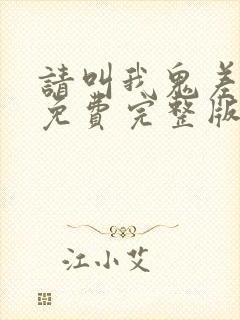 請叫我鬼差
免費完整版
江小艾